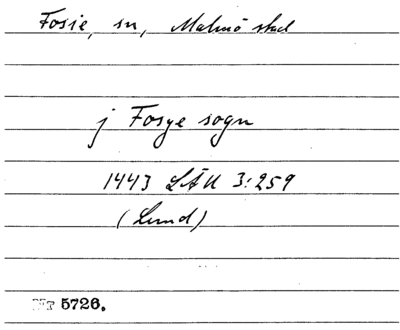 Fosie, sn, Malmö stad
j Fosye sogn
1443 LÄU 3:259
(Lund)
Nr 5726.